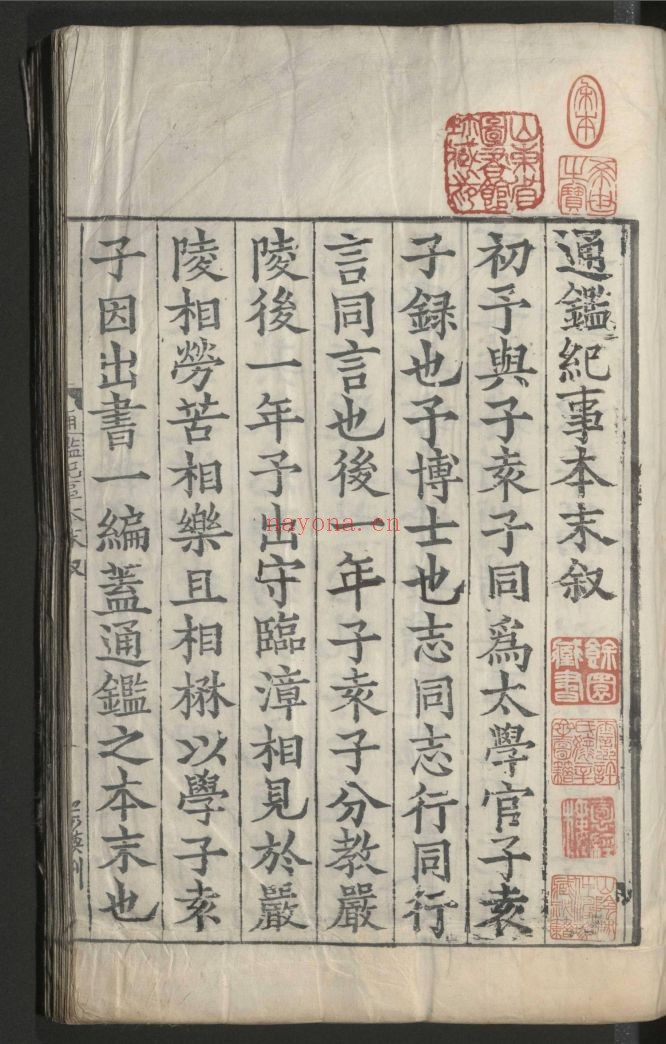 宋本
希世之寶
山東省圖書館珍藏印
通鑑紀事本末叙
餘園藏書
初予與子袁子同爲太學官子袁
子録也予博士也志同志行同行
言同言也後一年子袁子分教嚴
陵後一年予出守臨漳相見於嚴
陵相勞苦相樂且相楙以學子袁
子因出書一編蓋通鑑之本末也
通鑑紀事本末叙
nayona.cn